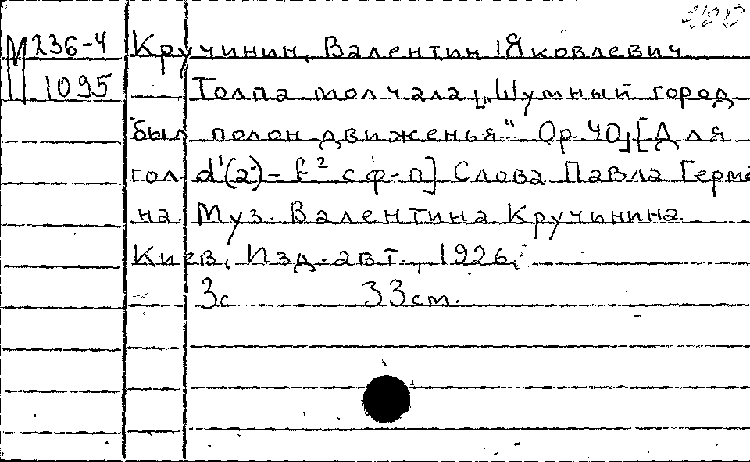 М 236-4
1095
Кручинин, Валентин Яковлевич
Толпа молчала „Шумный город
был полон движенья“ Ор. 40 [Для
гол d¹(a)-f² с ф-п] Слова Павла Герма
на Муз. Валентина Кручинина
Киев, Изд. авт., 1926,
3с 33cm.